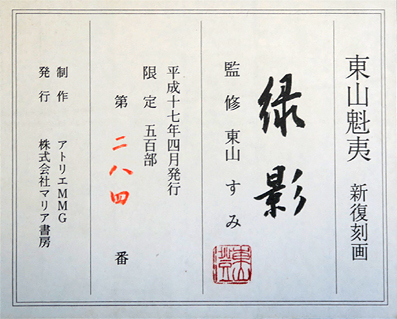 東山魁夷 新復刻画
緑影
監修 東山すみ
平成十七年四月発行
限定 五百部
第 二八四 番
制作 アトリエMMG
発行 株式会社マリア書房